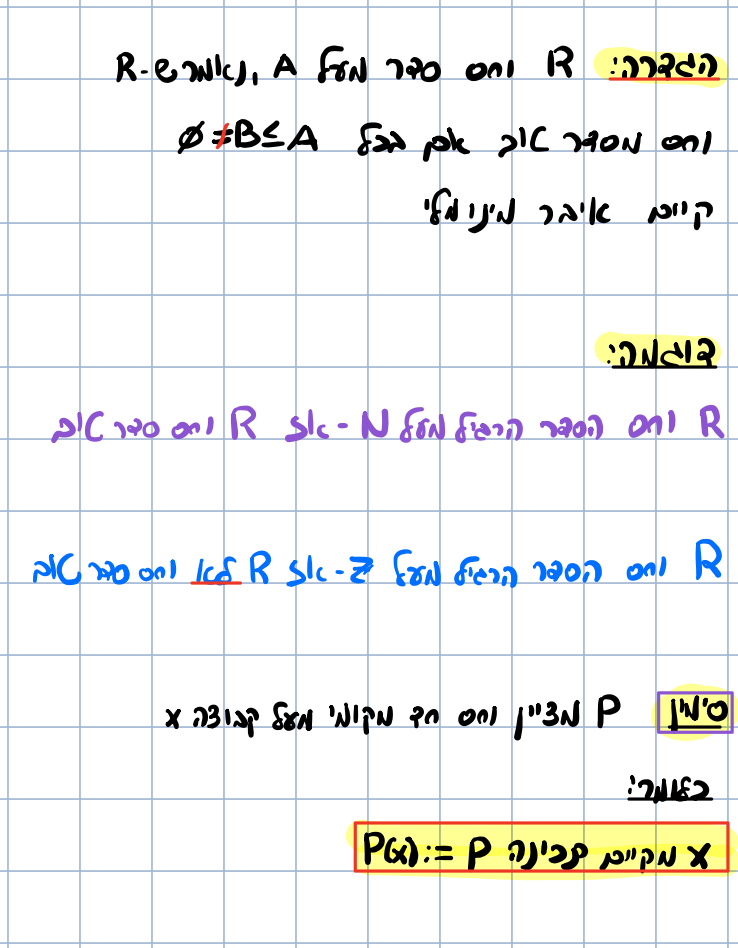 הגדרה: R יחס סדר מעל A, נאמר ש-R
יחס מסדר טוב אם לכל ∅≠B⊆A
קיים איבר מינימלי
דוגמה:
R יחס הסדר הרגיל מעל N - אז R יחס סדר טוב
R יחס הסדר הרגיל מעל Z - אז R לא יחס סדר טוב
סימון P מציין יחס חד מקומי מעל קבוצה x
כלומר:
x מקיים תכונה P =: P(x)